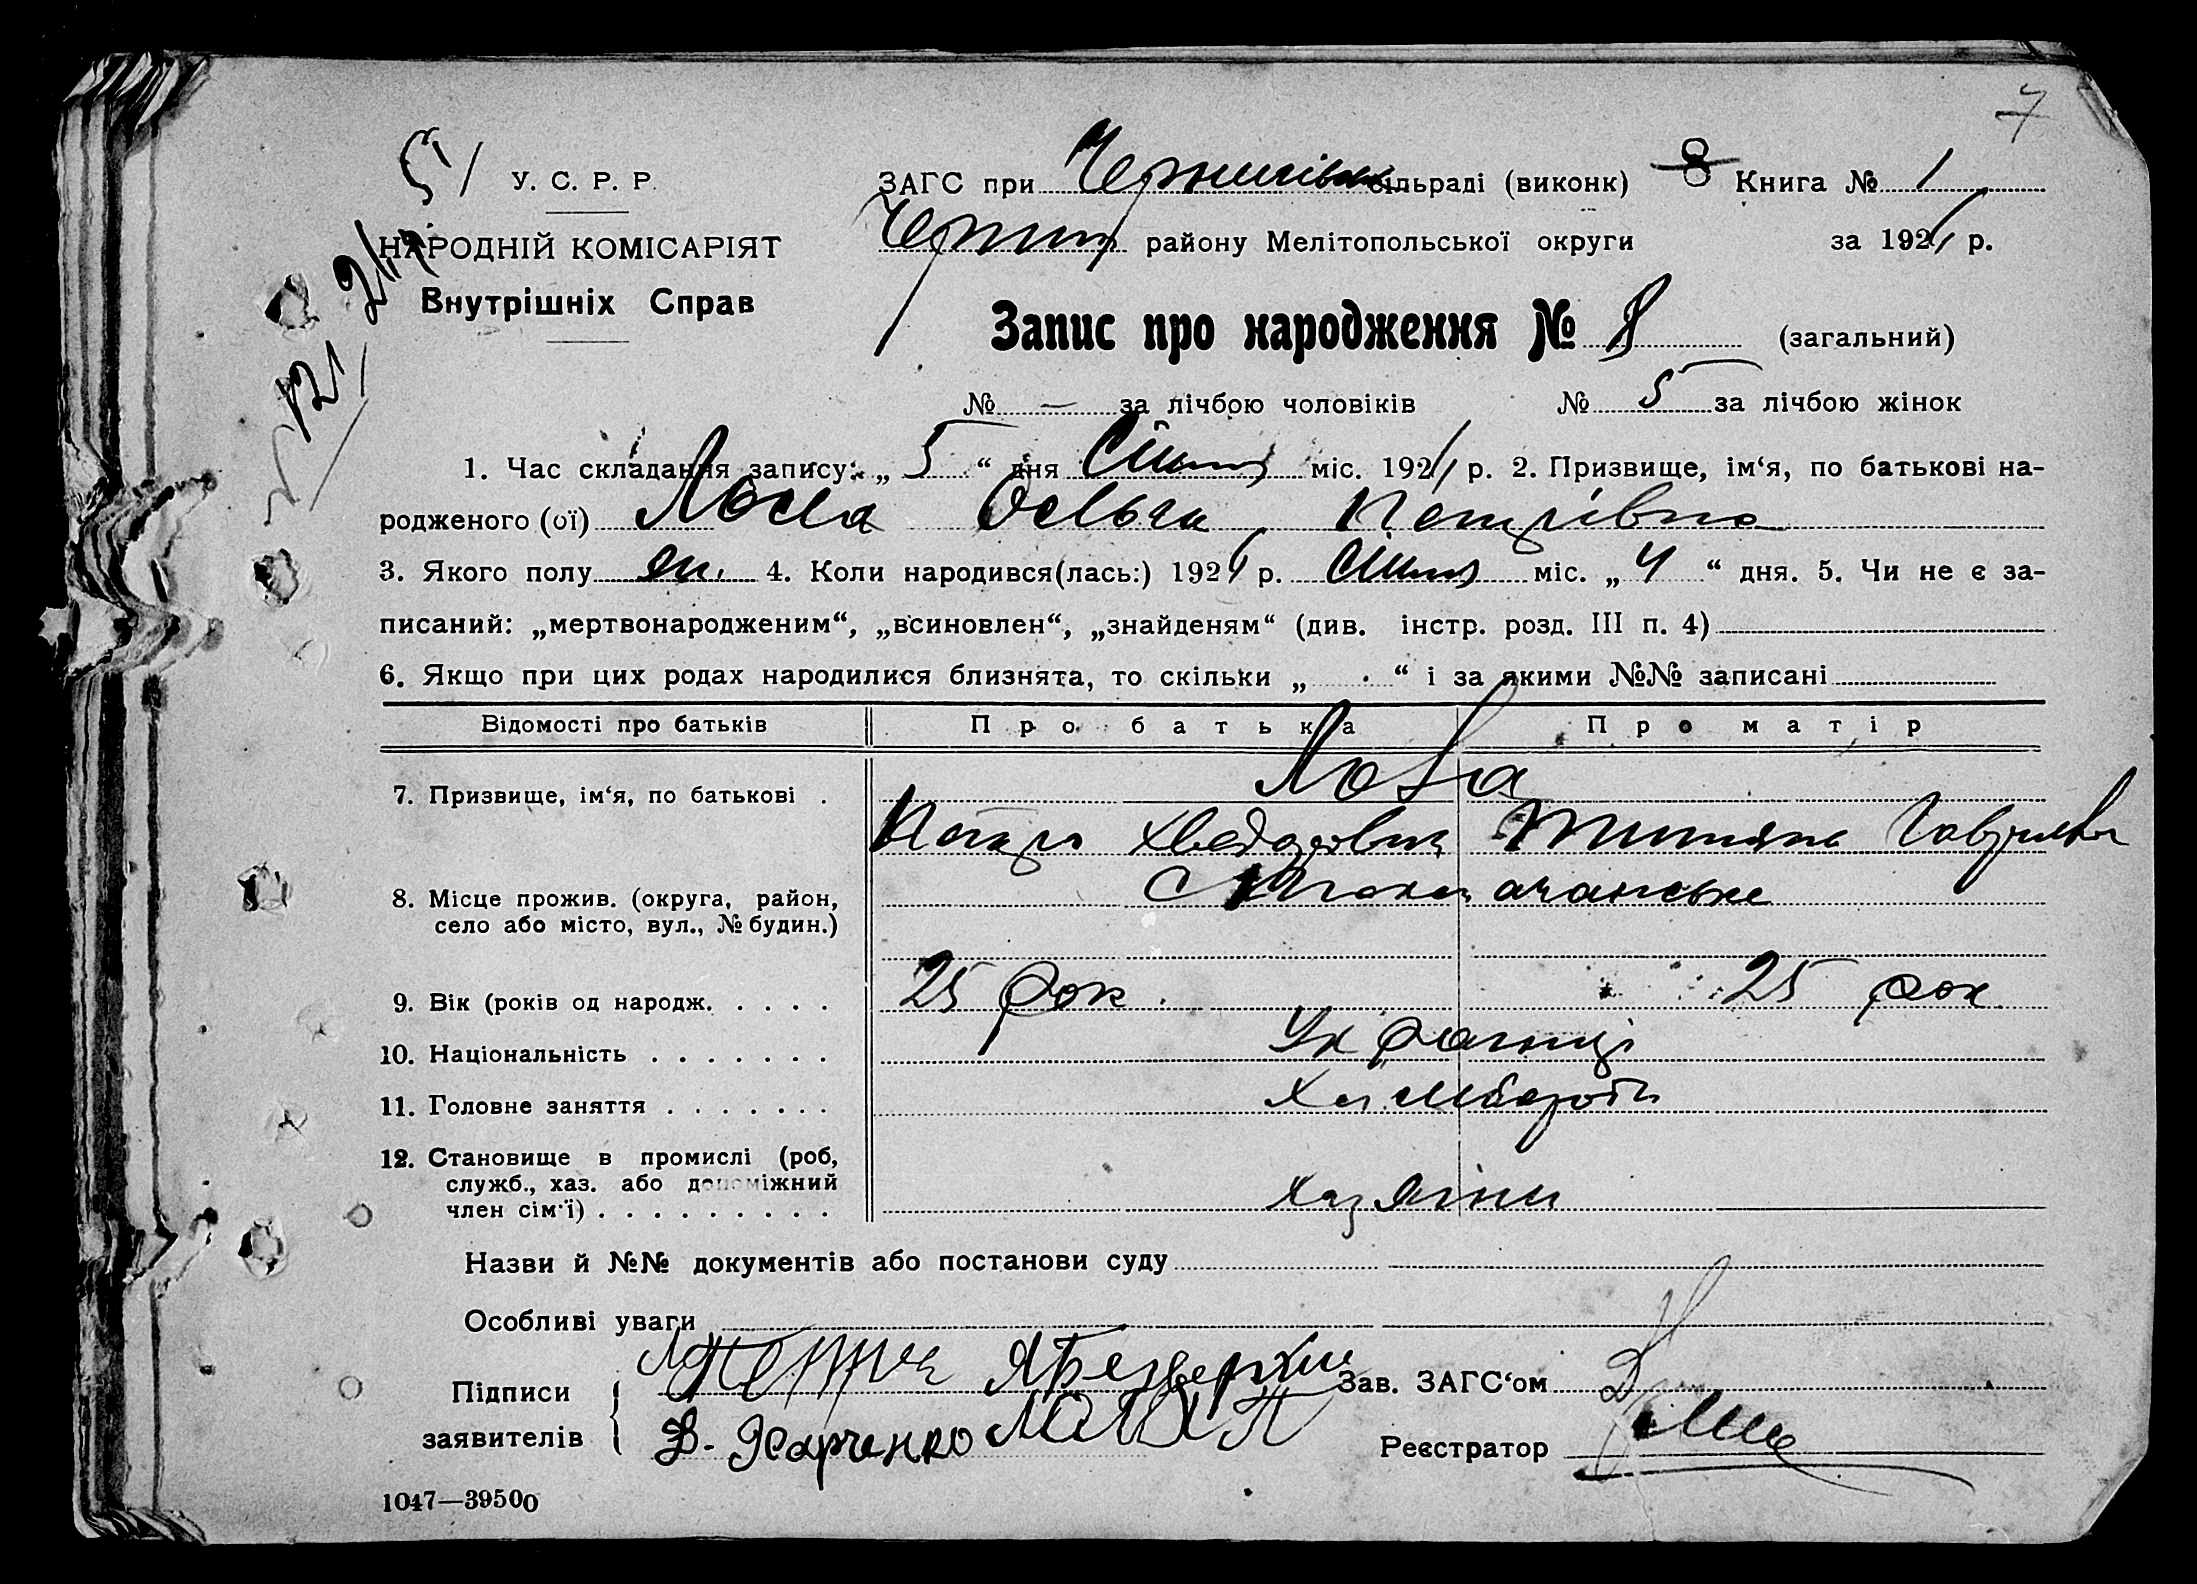 7
51 У. С. Р. Р. ЗАГС при Чернигівск сільраді (виконк) 8 Книга № 1
НАРОДНІЙ КОМІСАРІЯТ Черниг району Мелітопольської округи за 192 р.
Внутрішніх Справ
Запис про народження № 8 (загальний)
№ 121
№ — за лічбою чоловіків № 5 за лічбою жінок
1. Час складання запису: „ 5 “ дня Січня міс. 192 р. 2. Призвище, ім‘я, по батькові на-
родженого (ої) Лоза Ольга Петрівна
3. Якого полу жін. 4. Коли народився(лась:) 192 р. Січня міс. „ 4 “ дня. 5. Чи не є за-
писаний: „мертвонародженим“, „всиновлен“, „знайденям“ (див. інстр. розд. III п. 4)
6. Якщо при цих родах народилися близнята, то скільки „ “ і за якими №№ записані
Відомості про батьків Про батька Про матір
7. Призвище, ім‘я, по батькові . Лоза
Петро Хведорович Титяна Гаврилівна
8. Місце прожив. (округа, район,
село або місто, вул., № будин.)
9. Вік (років од народж. . . . . 25 рок. 25 рок
10. Національність . . . . . . . Українці
11. Головне заняття . . . . . . . Хліборобі
12. Становище в промислі (роб,
служб., хаз. або допоміжний
член сім‘ї) . . . . . . . . . Хазяїни
Назви й №№ документів або постанови суду
Особливі уваги
Підписи Зав. ЗАГС‘ом
заявителів Харченко Реєстратор
1047—39500